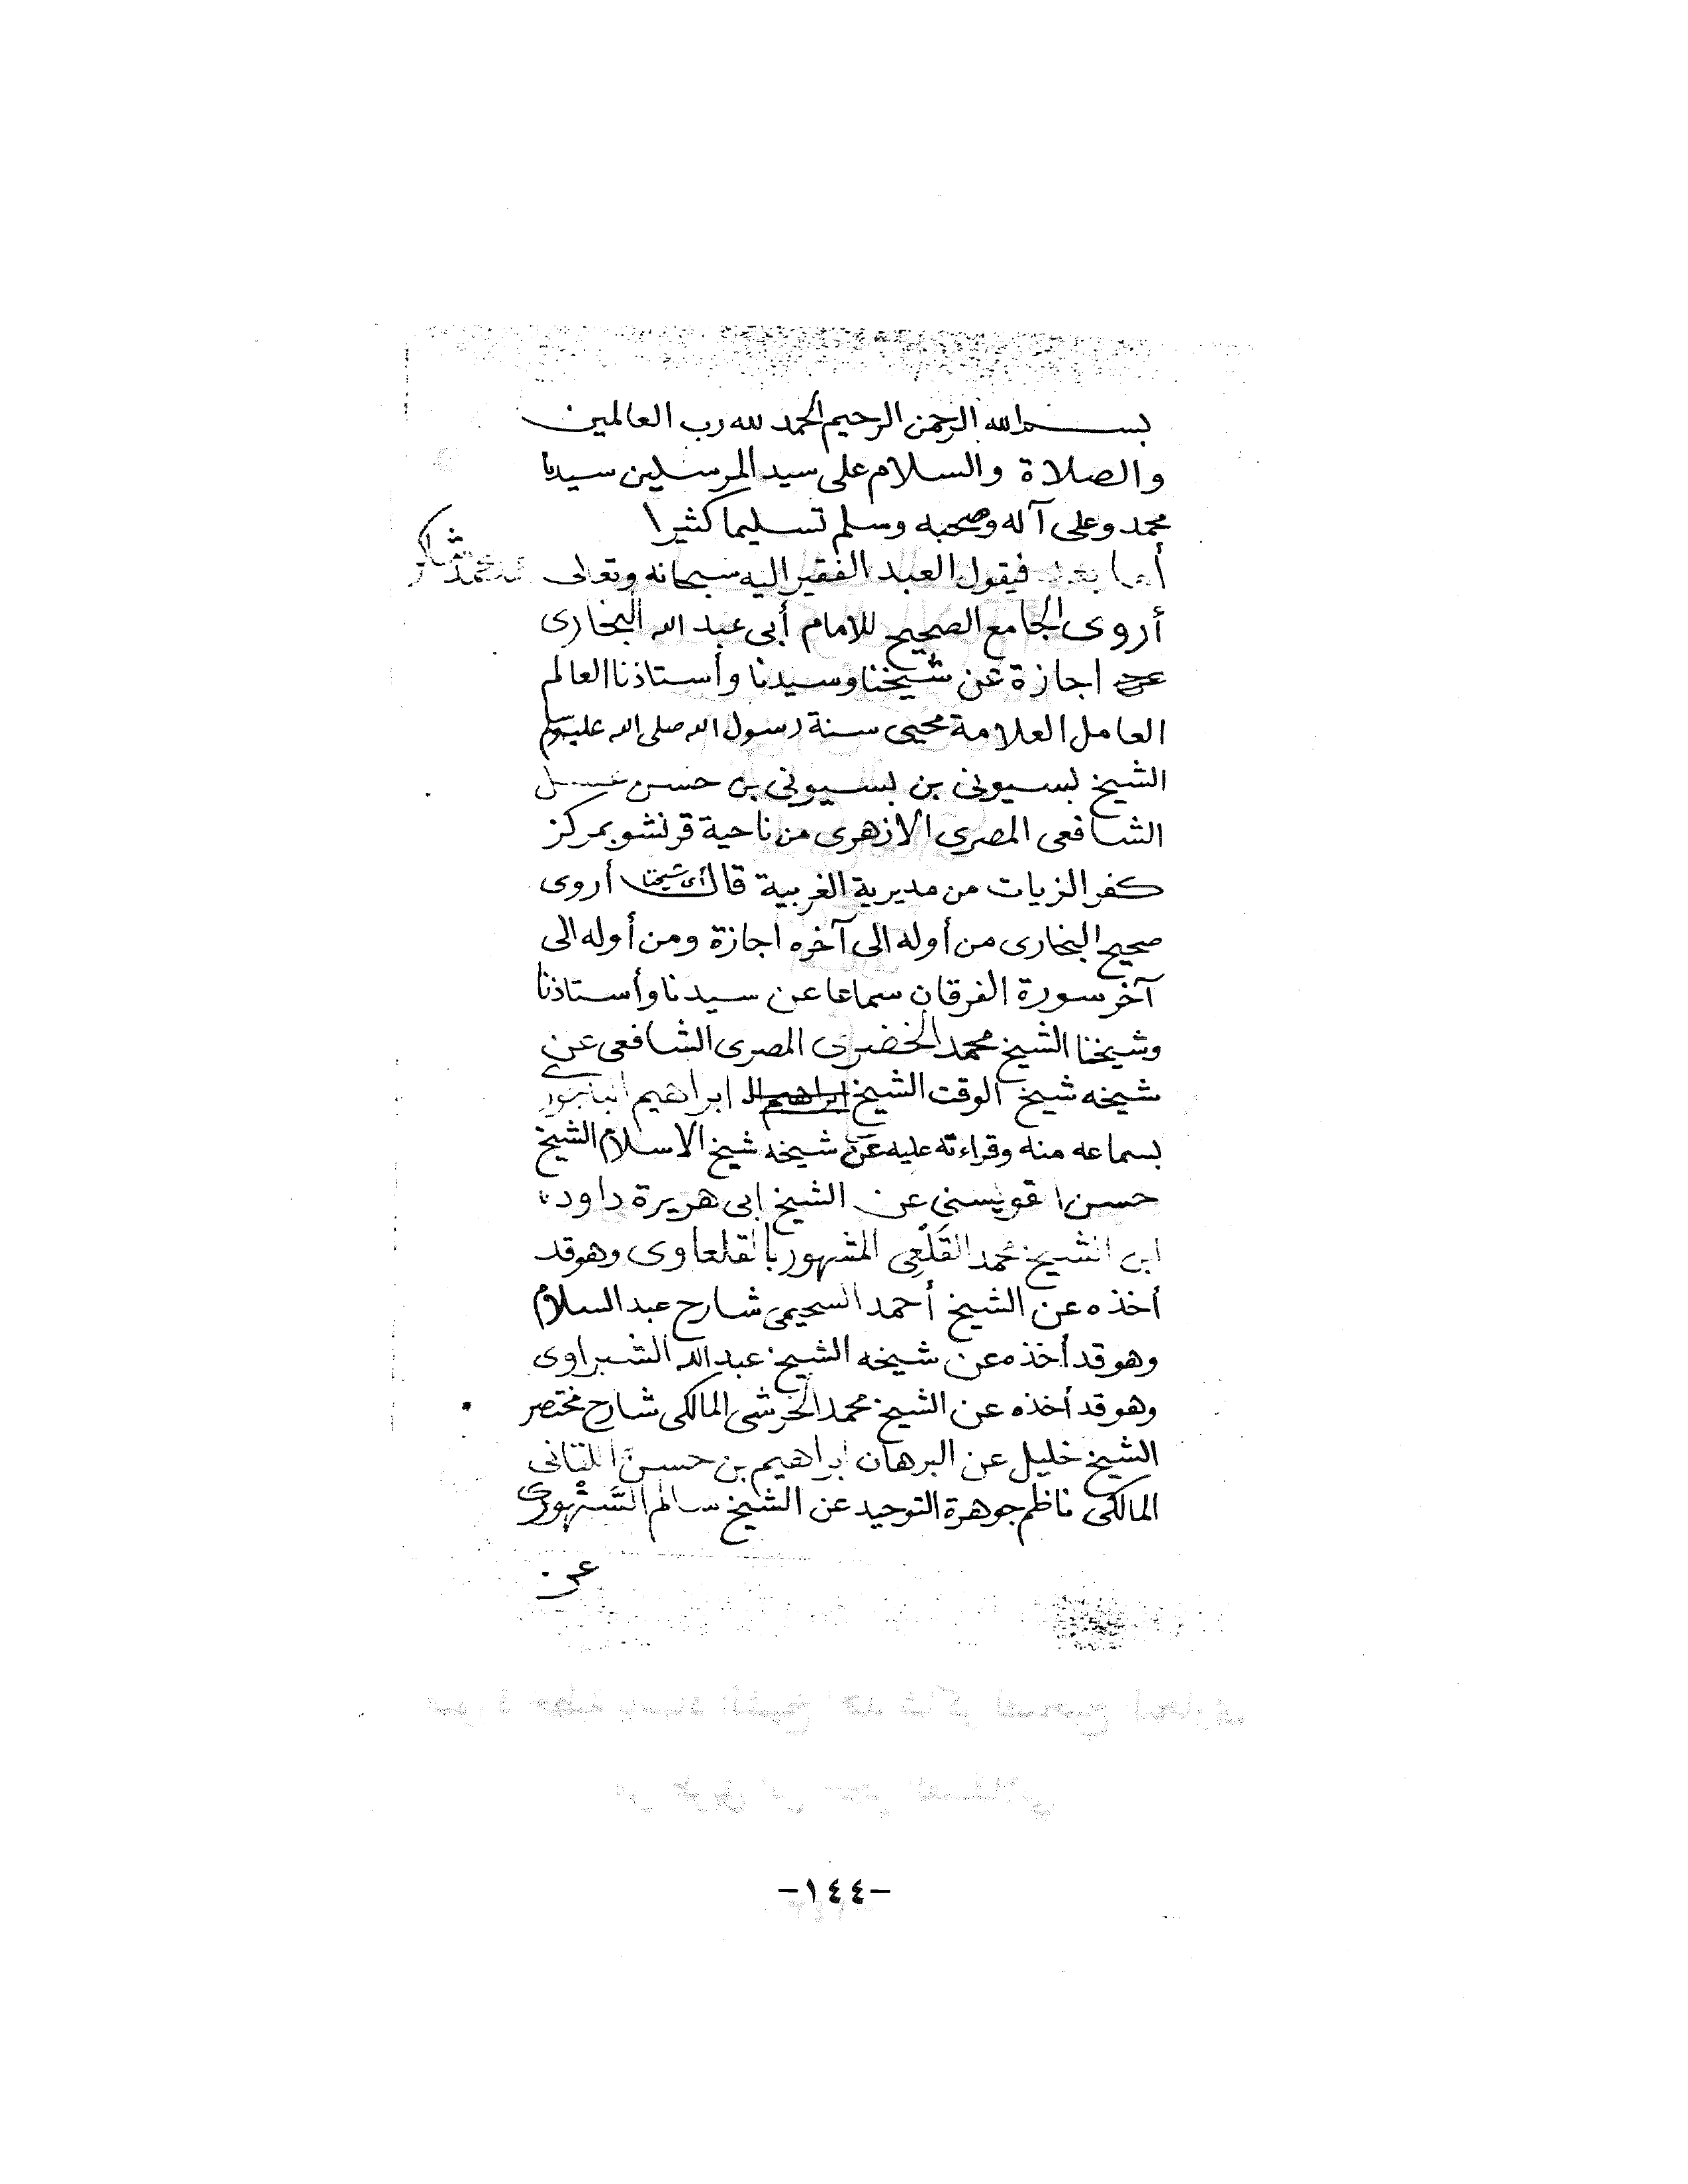 بسم الله الرحمن الرحيم الحمد لله رب العالمين
والصلاة والسلام على سيد المرسلين سيدنا
محمد وعلى آله وصحبه وسلم تسليما كثيرا
أما بعد فيقول العبد الفقير اليه سبحانه وتعالى محمد شاكر
أروى الجامع الصحيح للامام أبى عبد الله البخارى
اجازة عن شيخنا وسيدنا وأستاذنا العالم
العامل العلامة محيى سنة رسول الله صلى الله عليه وسلم
الشيخ بسيونى بن بسيونى بن حسن عسل
الشافعى المصرى الازهرى من ناحية قرنشو بمركز
كفر الزيات من مديرية الغربية قال أى شيخنا أروى
صحيح البخارى من أوله الى آخره اجازة ومن أوله الى
آخر سورة الفرقان سماعا عن سيدنا وأستاذنا
وشيخنا الشيخ محمد الخضرى المصرى الشافعى عن
شيخه شيخ الوقت الشيخ ابراهيم ال ابراهيم الباجورى
بسماعه منه وقراءته عليه عن شيخه شيخ الاسلام الشيخ
حسن القويسنى عن الشيخ ابى هريرة داود
ابن الشيخ محمد القَلْعِى المشهور بالقلعاوى وهو قد
أخذه عن الشيخ أحمد السحيمى شارح عبد السلام
وهو قد أخذه عن شيخه الشيخ عبد الله الشبراوى
وهو قد أخذه عن الشيخ محمد الخرشى المالكى شارح مختصر
الشيخ خليل عن البرهان ابراهيم بن حسن اللقانى
المالكى ناظم جوهرة التوحيد عن الشيخ سالم السَّنْهورى
عن
-١٤٤-